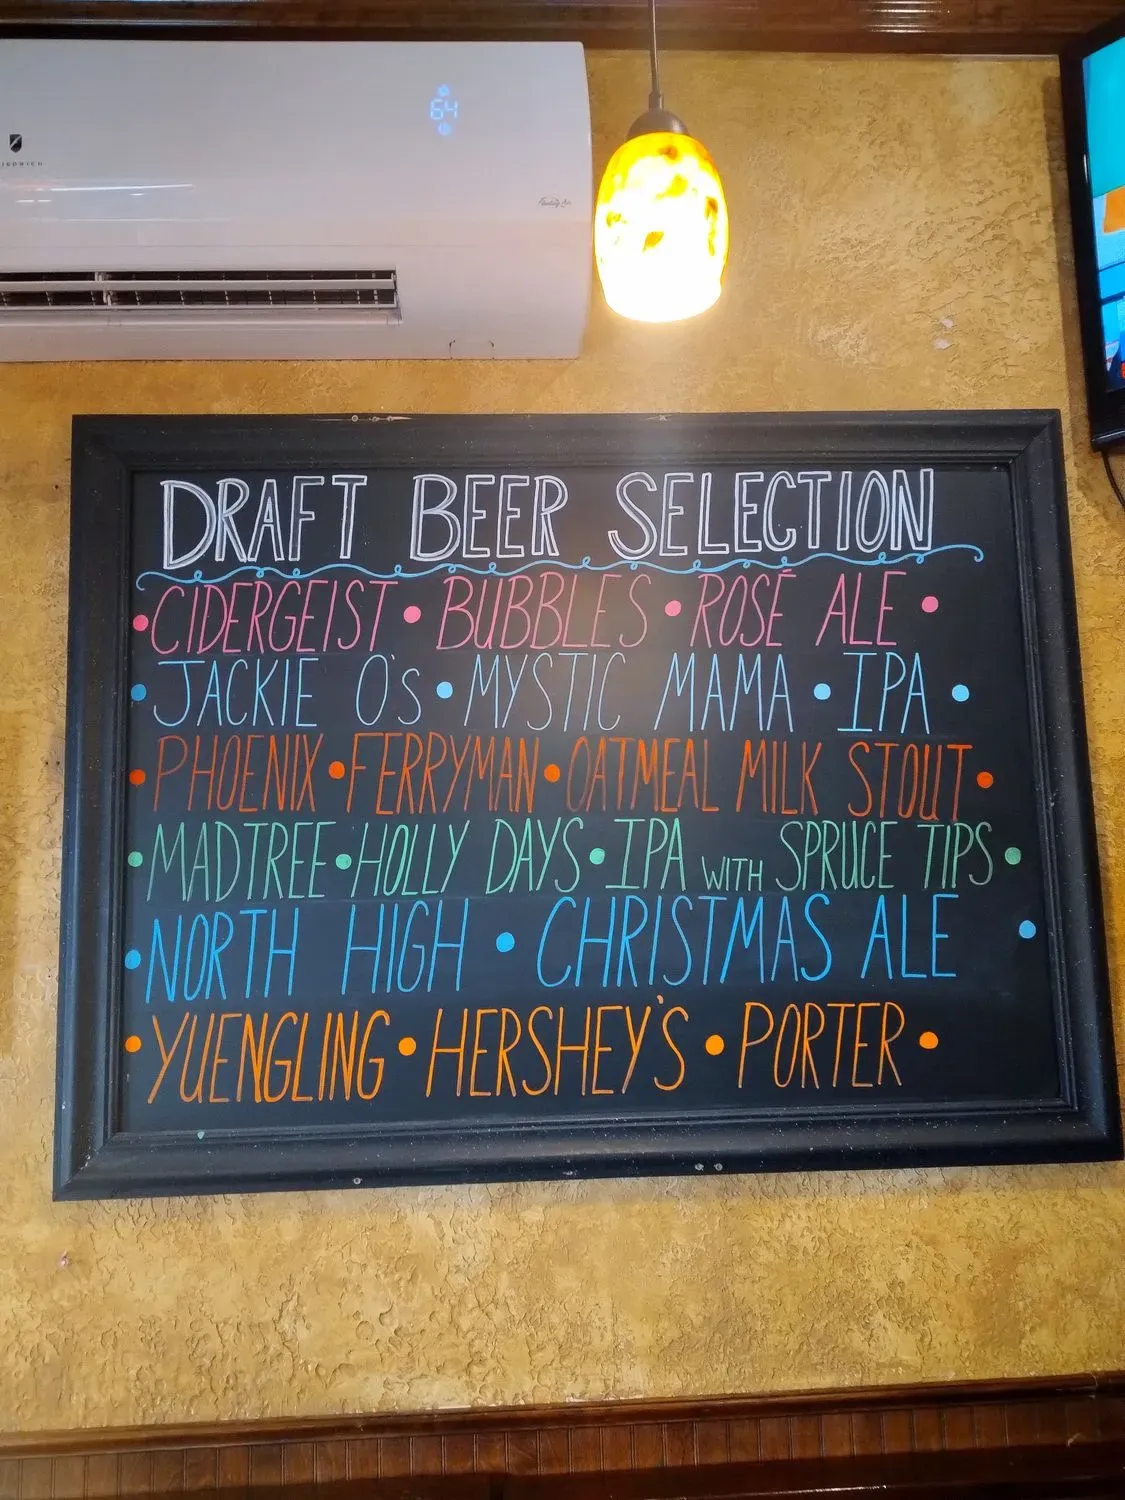 64
DRAFT BEER SELECTION
• CIDERGEIST • BUBBLES • ROSÉ ALE •
• JACKIE O's • MYSTIC MAMA • IPA •
• PHOENIX • FERRYMAN • OATMEAL MILK STOUT •
• MADTREE • HOLLY DAYS • IPA WITH SPRUCE TIPS •
• NORTH HIGH • CHRISTMAS ALE •
• YUENGLING • HERSHEY'S • PORTER •